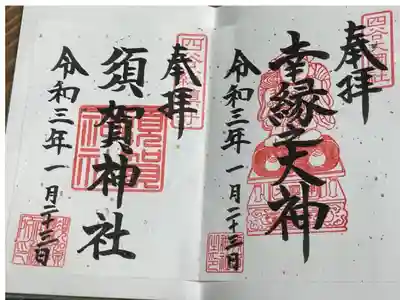 奉拝
幸縁之大神
令和三年一月二十三日
奉拝
須賀神社
令和三年一月二十三日